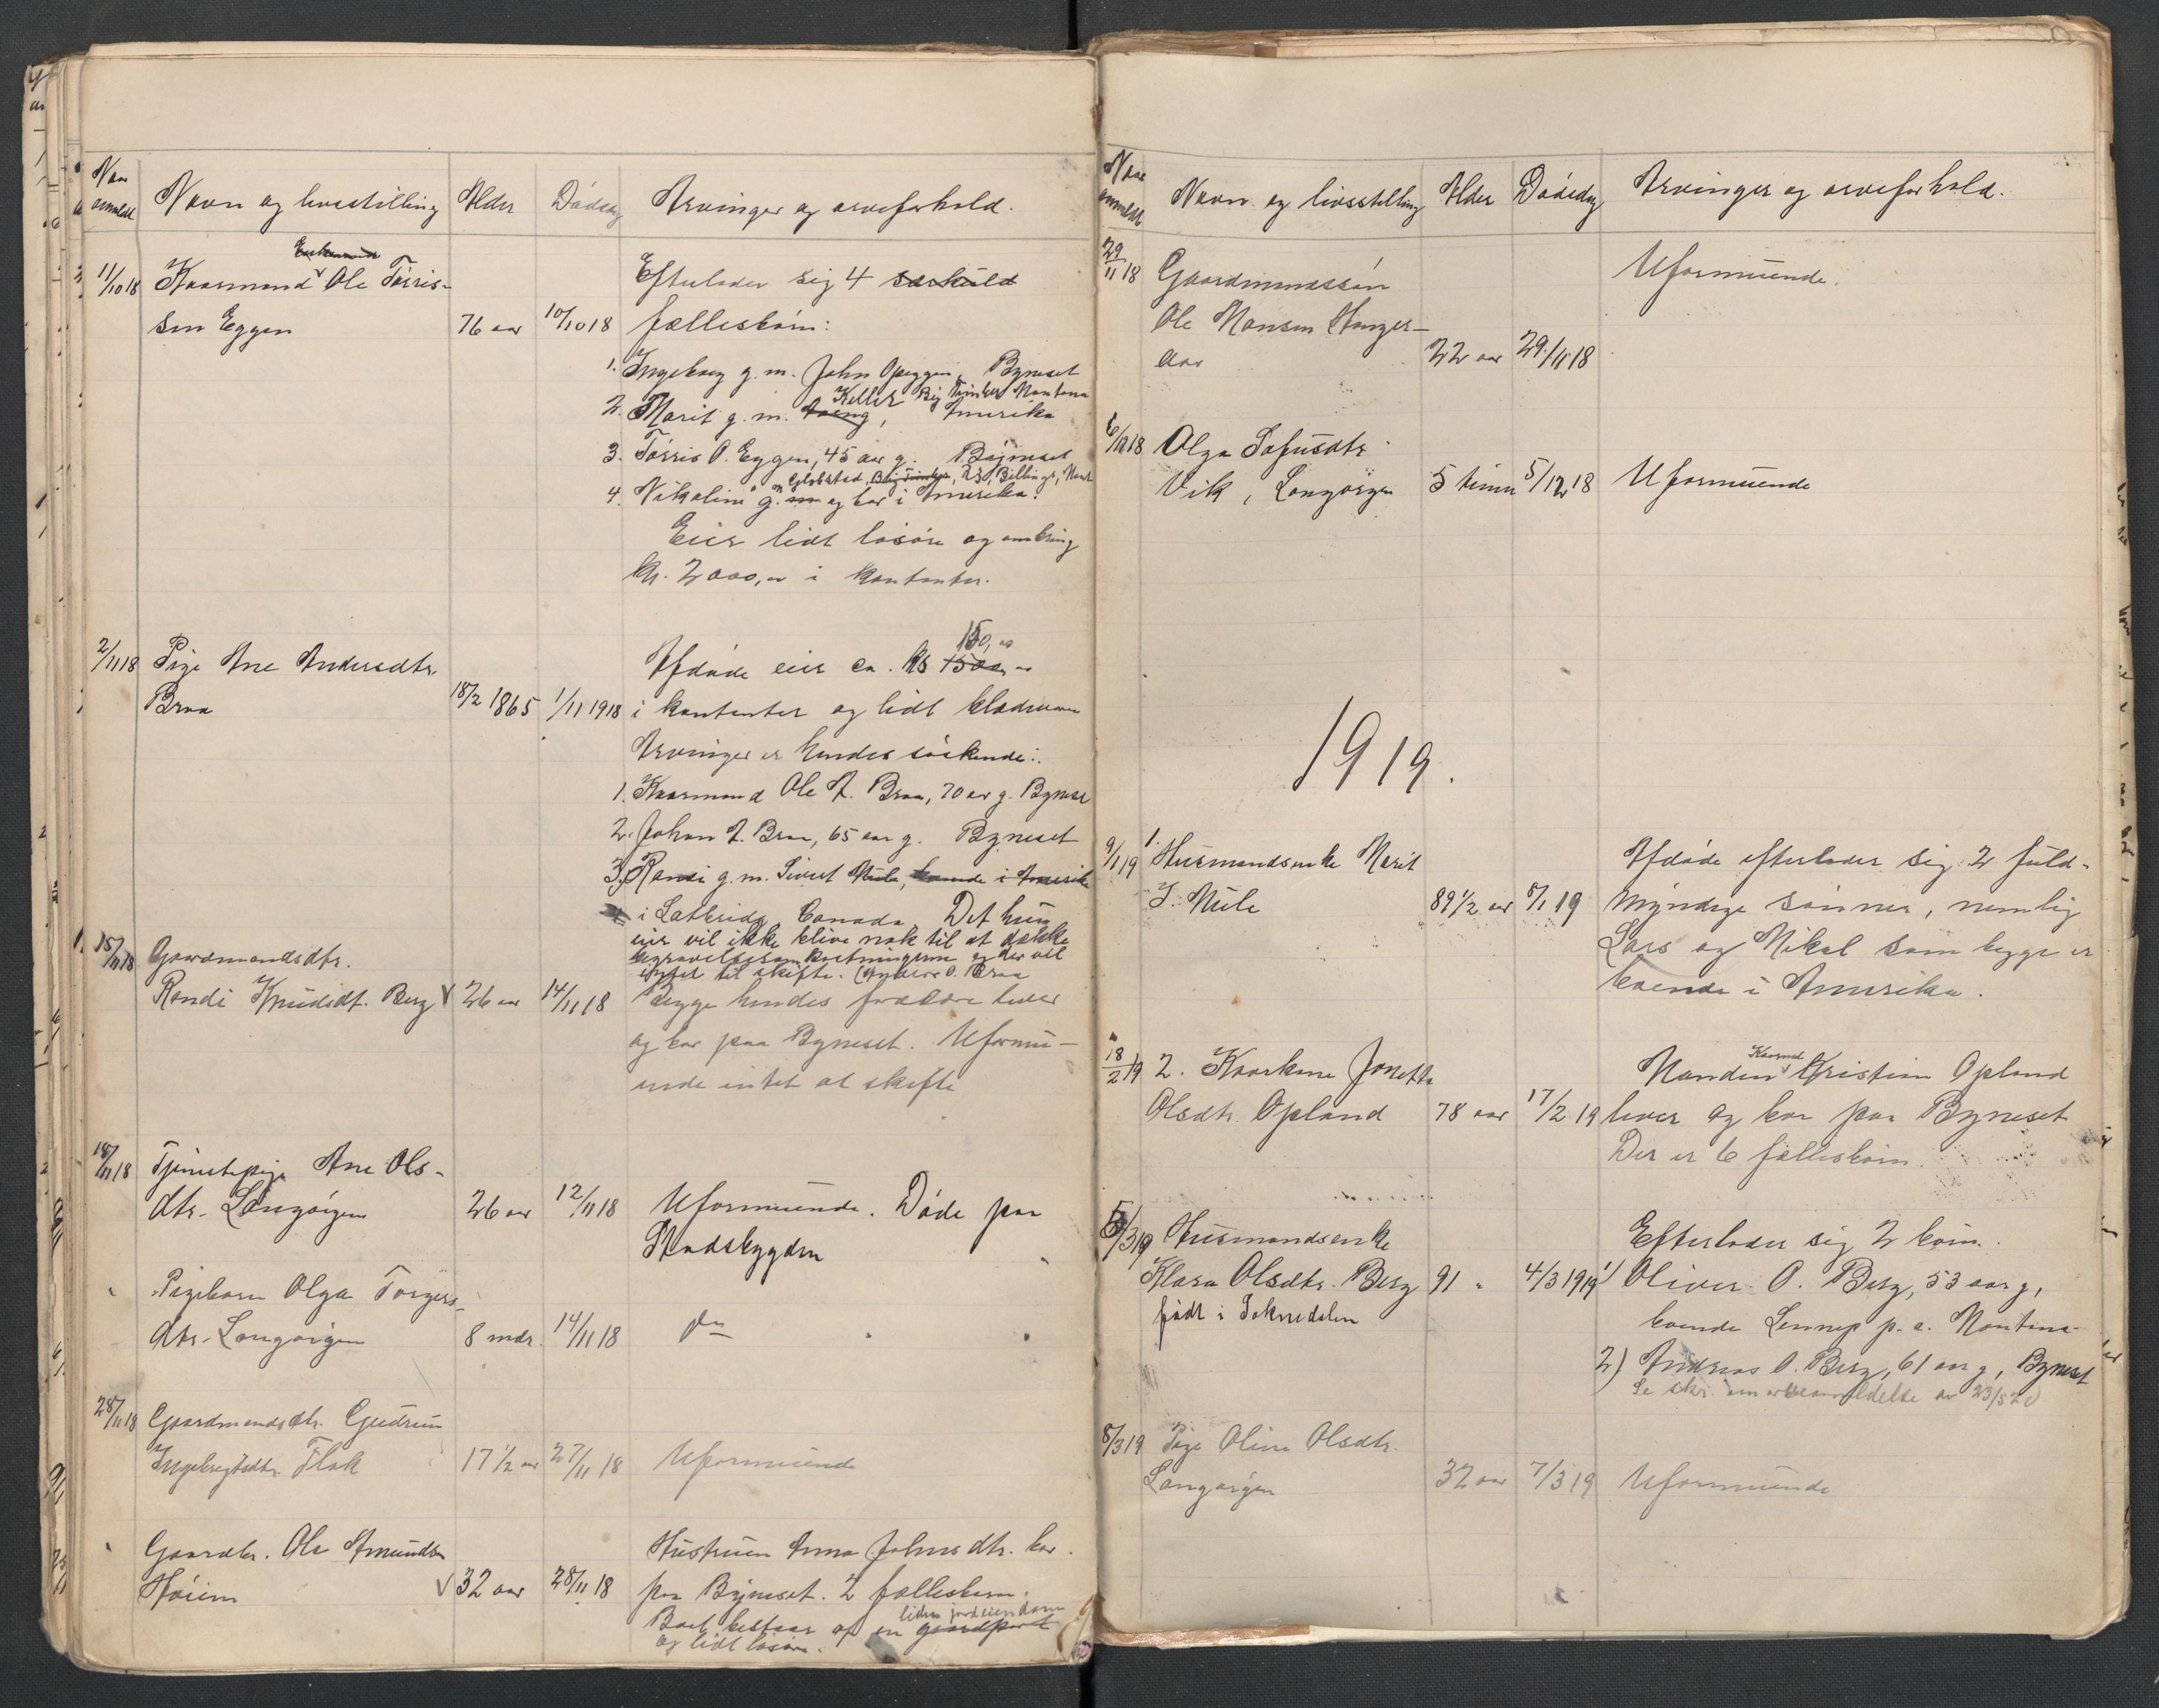 Naar anmeldt
Navn og livsstilling
Alder
Dødsdag
Arvinger og arveforhold.
11/10 18
Enkemand
Kaarmand Ole Tørris-
sen Eggen
76 aar
10/10 18
Efterlader sig 4 særkuld
fællesbørn:
1. Ingeborg g. m. John Opeggen, Byneset
Keller Big Timber Montana
2. Marit g. m. Aaeng, Amerika
3. Tørris O. Eggen, 45 aar g. Byneset
Big Timber, R3, Billings, Mont
4. Nikoline g. m og bor i Amerika.
Eier lidt løsøre og omkring
kr. 2000,00 i kontanter.
2/11 18
Pige Ane Andersdtr.
Braa
18/2 1865
1/11 1918
150,00
Afdøde eier ca. kr 1500,00
i kontanter og lidt klædevarer
Arvinger er hendes søskende:
1. Kaarmand Ole A. Braa, 70 aar g. Byneset
2. Johan A. Braa, 65 aar g. Byneset
3. Randi g. m. Sivert Mule, boende i Amerika
i Canada. Det hun
eier vil ikke blive nok til at dække
begravelsesomkostningerne og der vil
intet til skifte. (Anders O. Braa
15/11 18
Gaardmandsdtr.
Randi Knudsdt. Berg
26 aar
14/11 18
Begge hendes forældre lever
og bor paa Byneset. Uformu-
ende intet at skifte
18/11 18
Tjenestepige Ane Ols-
dtr. Langørgen
26 aar
12/11 18
Uformuende. Døde paa
Stadsbygden
Pigebarn Olga Torgers-
dtr. Langørgen
8 mdr.
14/11 18
do
28/11 18
Gaardmandsdtr. Gudrun
Ingebrigtsdtr. Flak
17 1/2 aar
27/11 18
Uformuende
Gaardbr. Ole Amundsen
Høiem
32 aar
28/11 18
Hustruen Anna Johnsdtr. bor
paa Byneset. 2 fællesbarn.
liden jordeiendom
Boet bestaar af en gaardpart
og lidt løsøre.
Naar anmeldt
Navn og livsstilling
Alder
Dødsdag
Arvinger og arveforhold.
29/11 18
Gaardmandssøn
Ole Hansen Hanger-
aas
22 aar
29/11 18
Uformuende.
6/12 18
Olga Sofusdtr.
Vik, Langørgen
5 timer
5/12 18
Uformuende
1919.
9/1 19
1. Husmandsenke Marit
J. Mule
89 1/2 aar
8/1 19
Afdøde efterlader sig 2 fuld-
myndige sønner, nemlig
Lars og Nikal som begge er
boende i Amerika.
18/2 19
2. Kaarkone Jonetta
Olsdtr. Opland
78 aar
17/2 19
Kaarmd
Manden Kristian Opland
lever og bor paa Byneset
Der er 6 fællesbørn.
5/3 19
Husmandsenke
Klara Olsdtr. Berg
født i Soknedalen
91 "
4/3 1919
Efterlader sig 2 børn.
1) Oliver O. Berg, 53 aar g,
boende Lennep p. o. Montana
2) Andreas O. Berg, 61 aar g, Byneset
Se skr. om arveanmeldelse av 23/5 20
8/3 19
Pige Oline Olsdtr.
Langørgen
32 aar
7/3 19
Uformuende